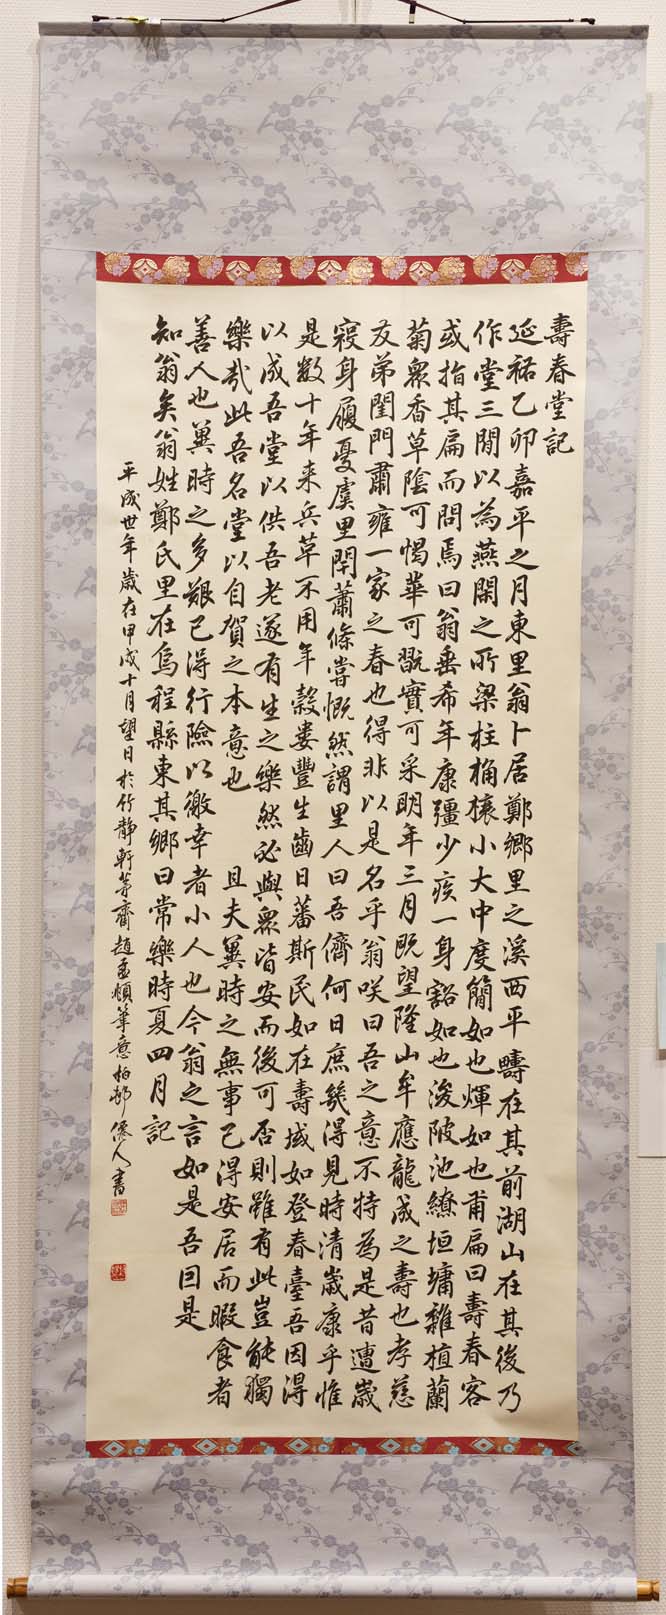 壽春堂記
延祐乙卯嘉平之月東里翁卜居鄭鄉里之溪西平疇在其前湖山在其後乃
作堂三間以為燕閑之所梁柱桷榱小大中度簡如也煇如也甫扁曰壽春客
或指其扁而問焉曰翁垂希年康彊少疾一身豁如也浚陂池繚垣墉雜植蘭
菊衆香草陰可愒華可翫實可采明年三月既望隆山牟應龍成之壽也孝慈
友弟閨門肅雍一家之春也得非以是名乎翁咲曰吾之意不特為是昔遭歲
寖身履憂虞里閈蕭條嘗慨然謂里人曰吾儕何日庶幾得見時清歲康乎惟
是數十年来兵革不用年穀婁豐生齒日蕃斯民如在壽域如登春臺吾因得
以成吾堂以供吾老遂有生之樂然必與衆皆安而後可否則雖有此豈能獨
樂哉此吾名堂以自賀之本意也 且夫冀時之無事己得安居而暇食者
善人也冀時之多艱己得行險以徼幸者小人也今翁之言如是吾囙是
知翁矣翁姓鄭氏里在烏程縣東其鄉曰常樂時夏四月記
平成廿年歲在甲戌十月望日於竹靜軒等齋趙孟頫筆意柏邨僊人書